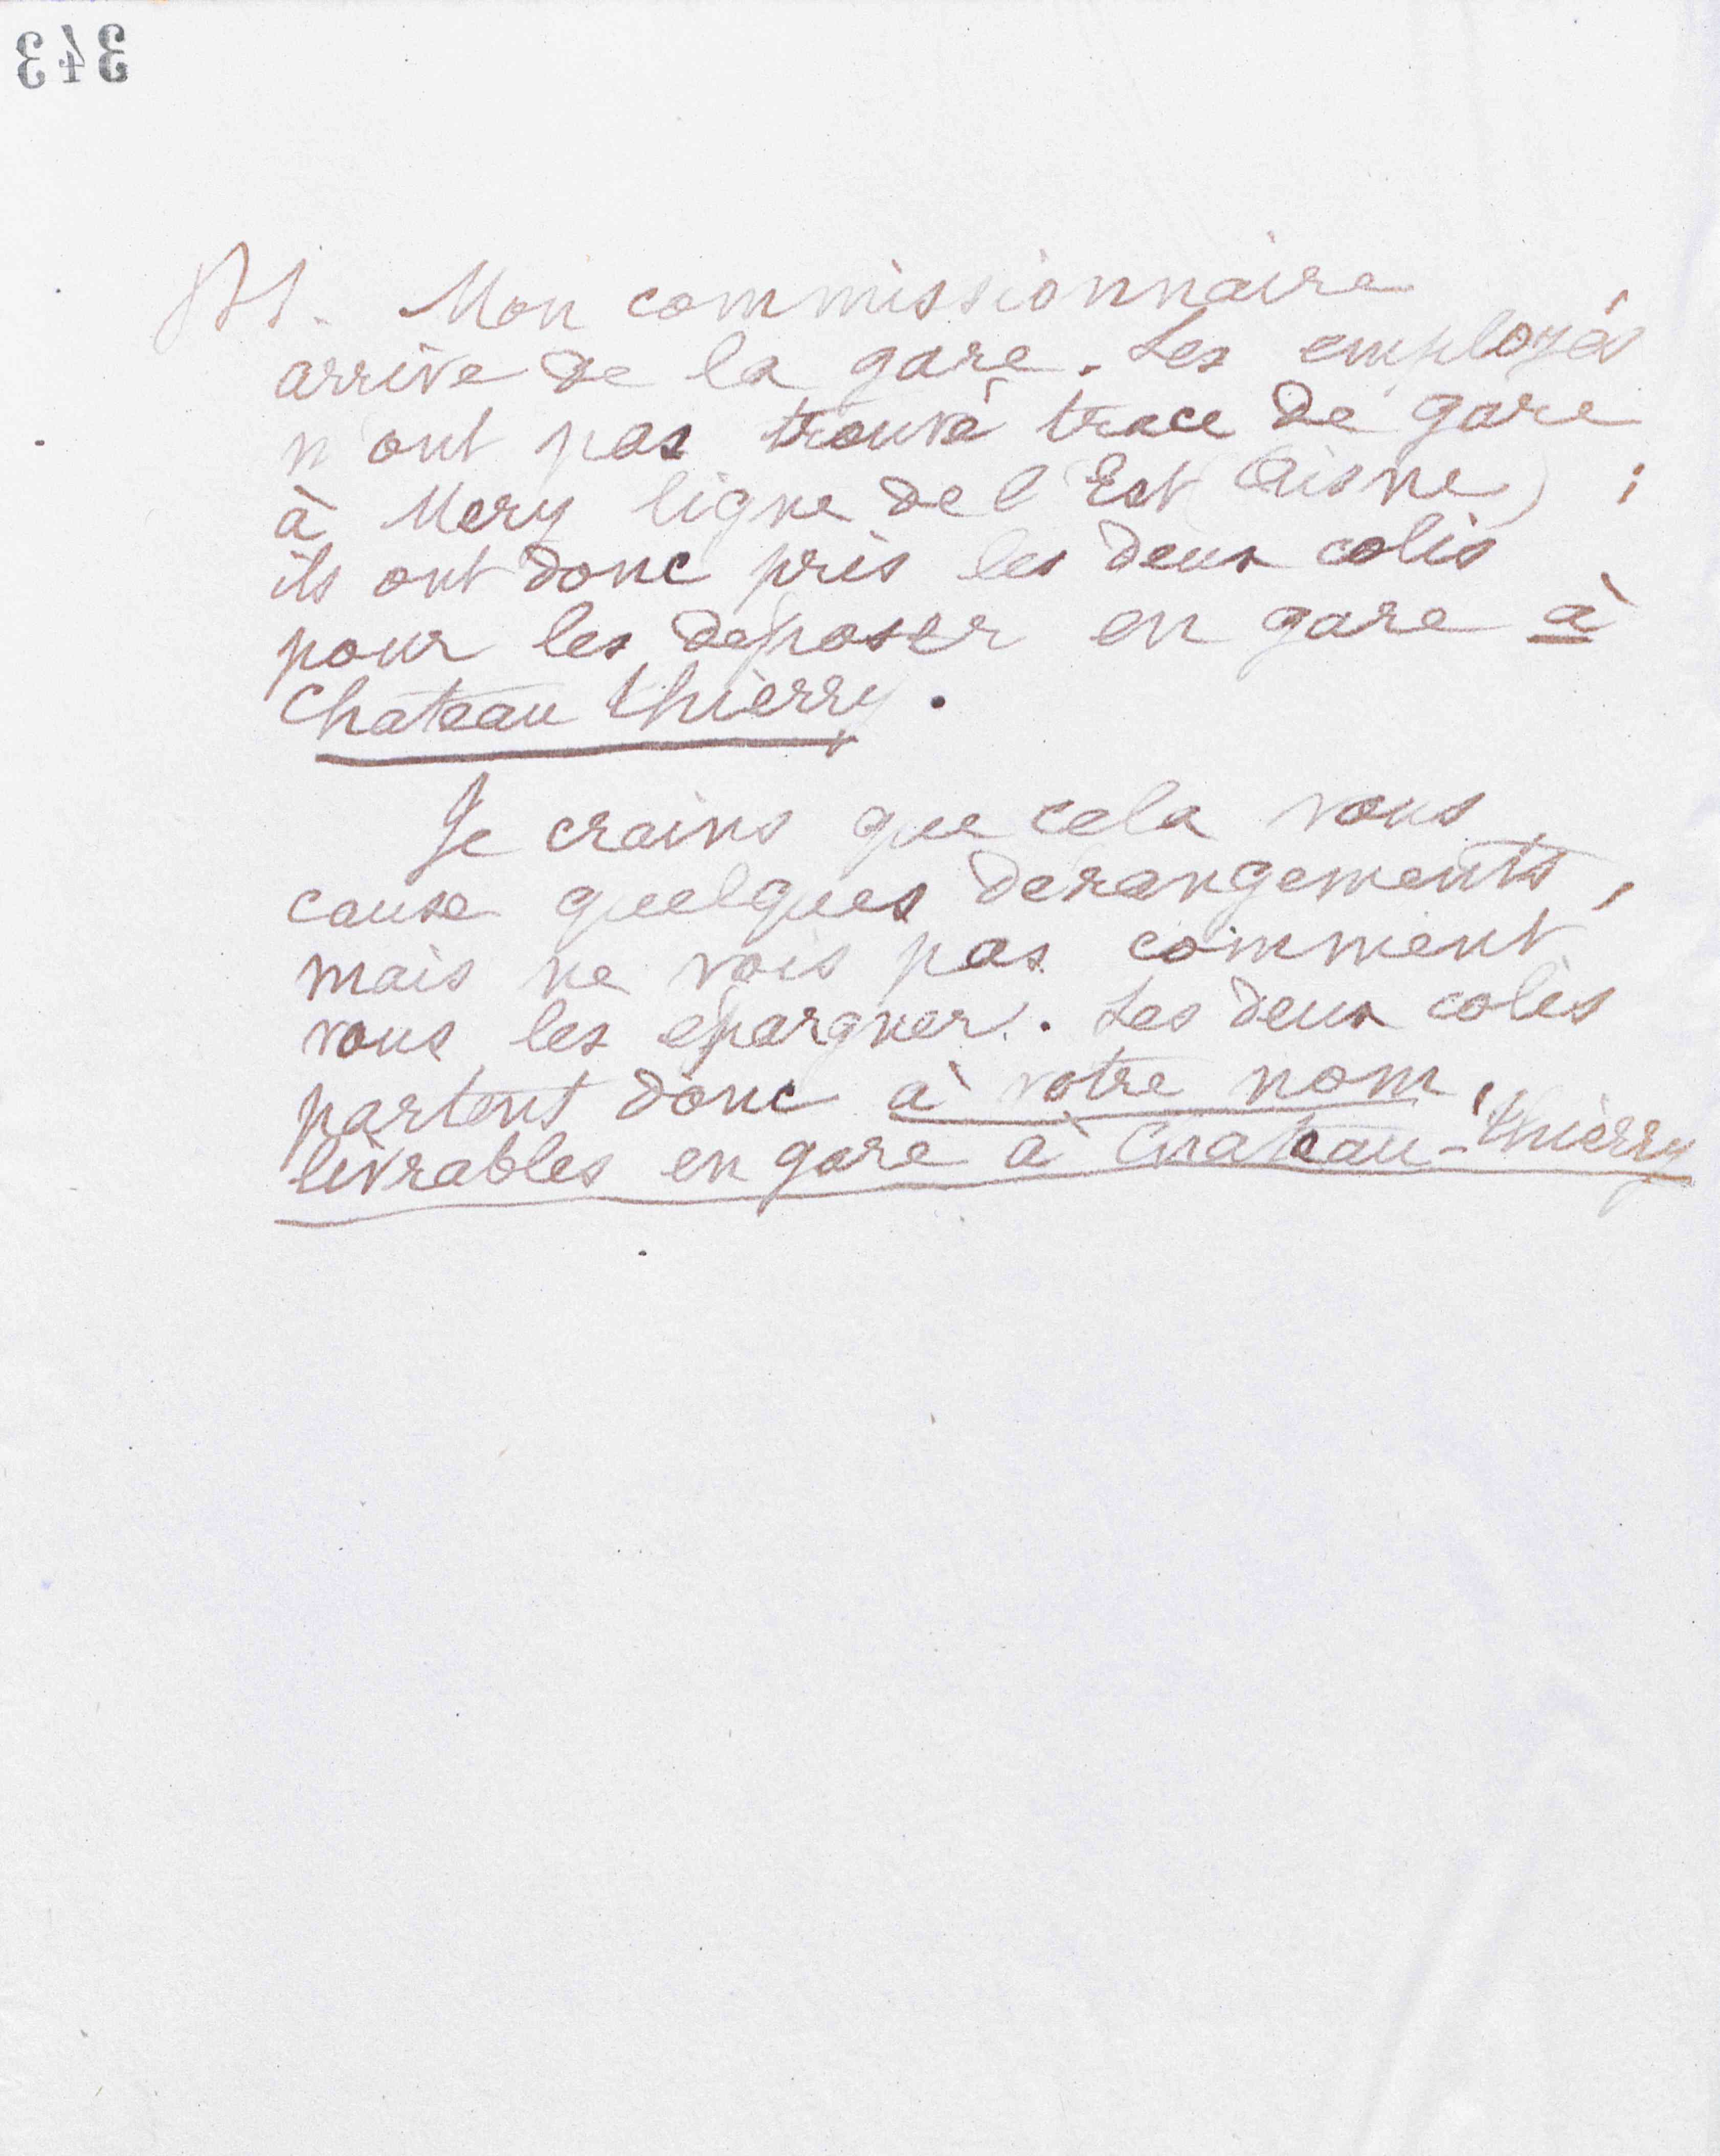 343
PS. Mon commissionnaire
arrive de la gare. Les employés
n'ont pas trouvé trace de gare
à Mery ligne de l'Est (Aisne) ;
ils ont donc pris les deux colis
pour les déposer en gare à
Chateau thierry.
Je crains que cela vous
cause quelques dérangements,
mais ne vois pas comment
vous les épargner. Les deux colis
partent donc à votre nom,
livrables en gare à Chateau-thierry